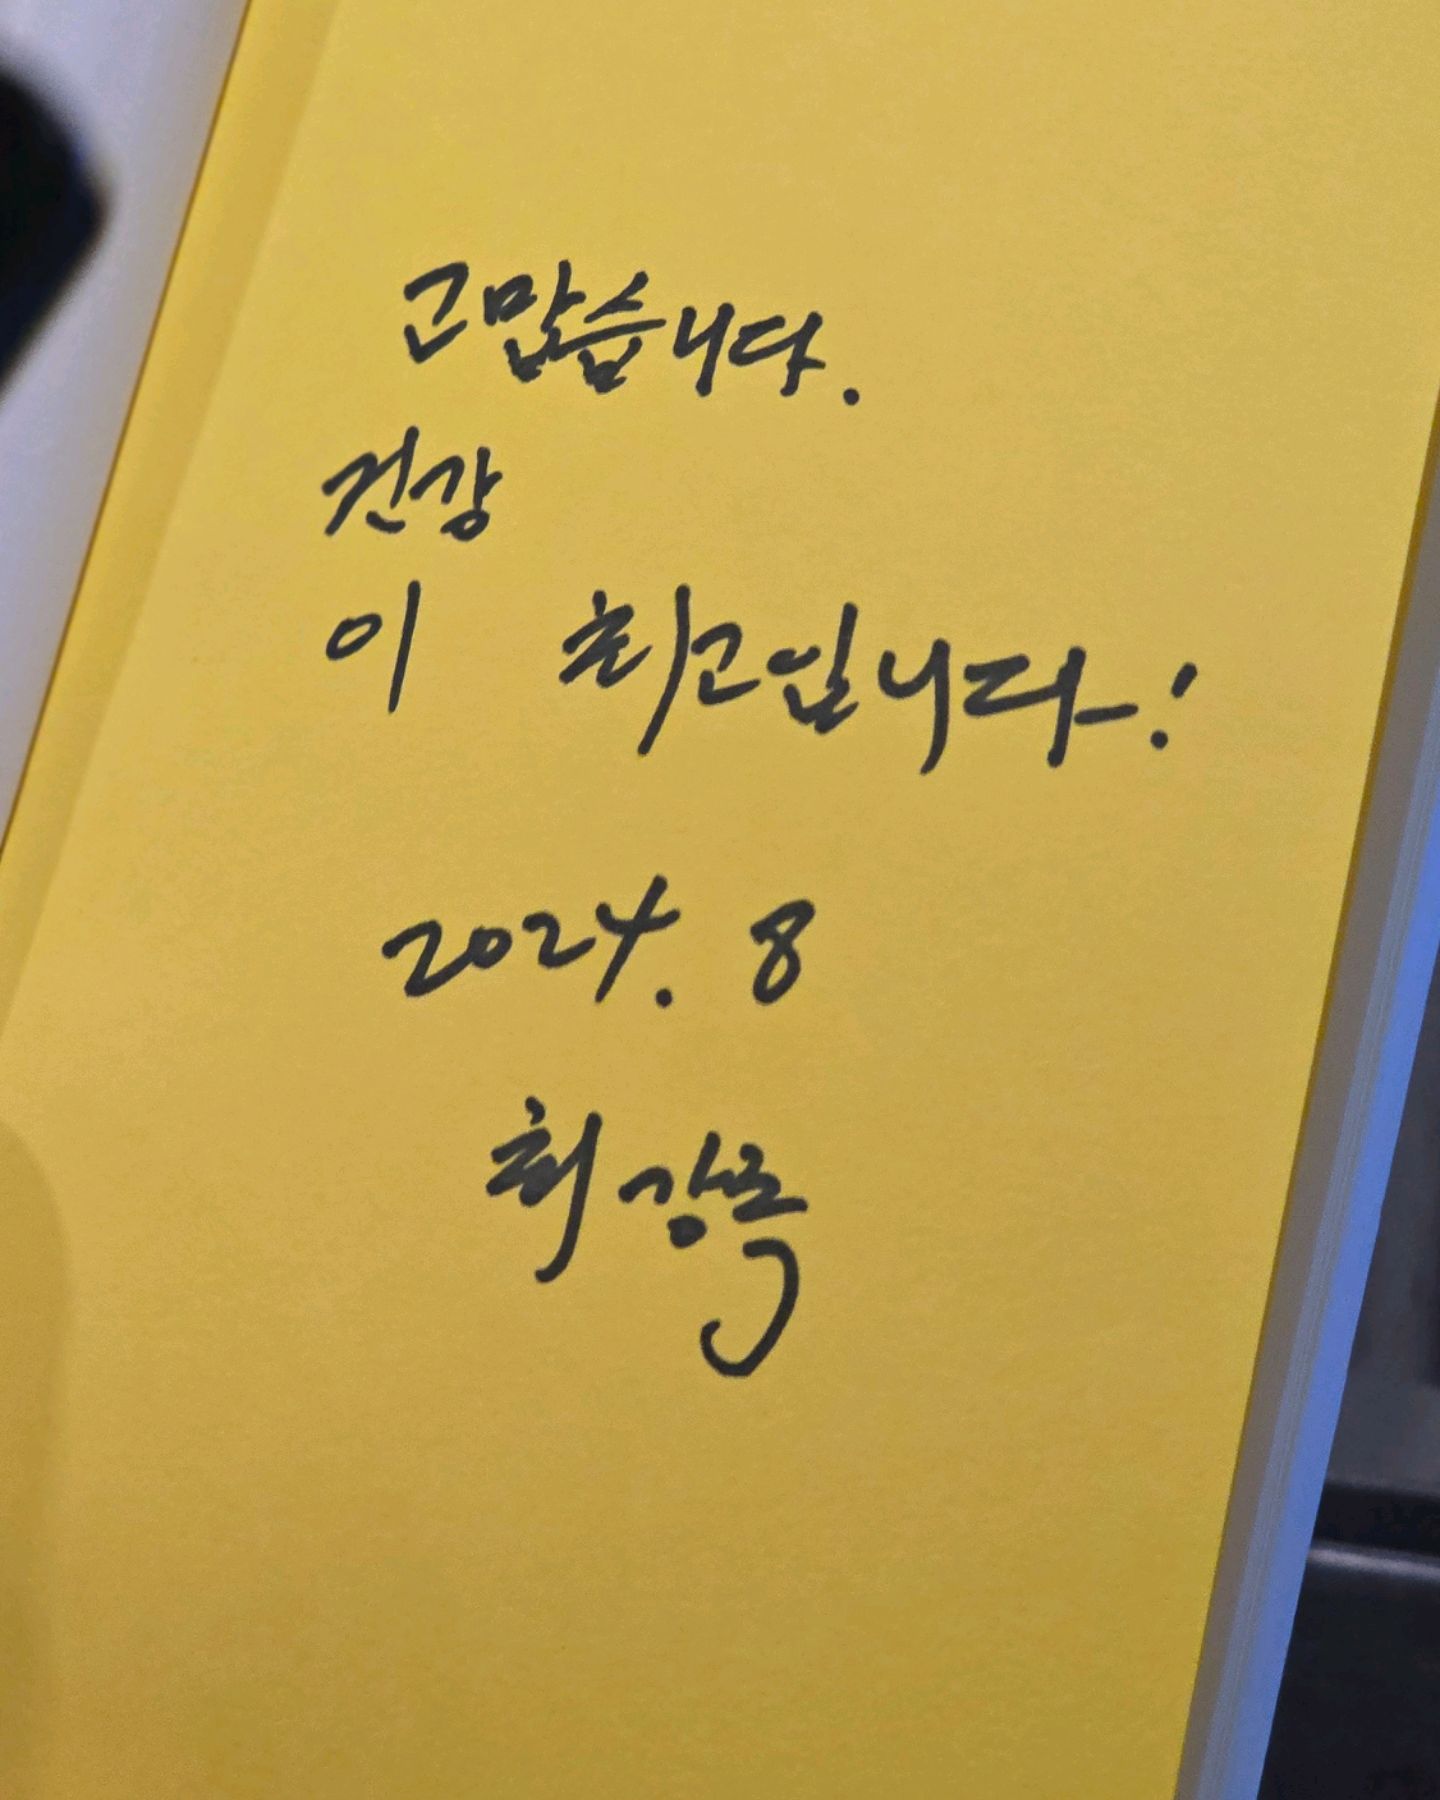 고맙습니다.
건강
이 최고입니다!
2024. 8
최강록